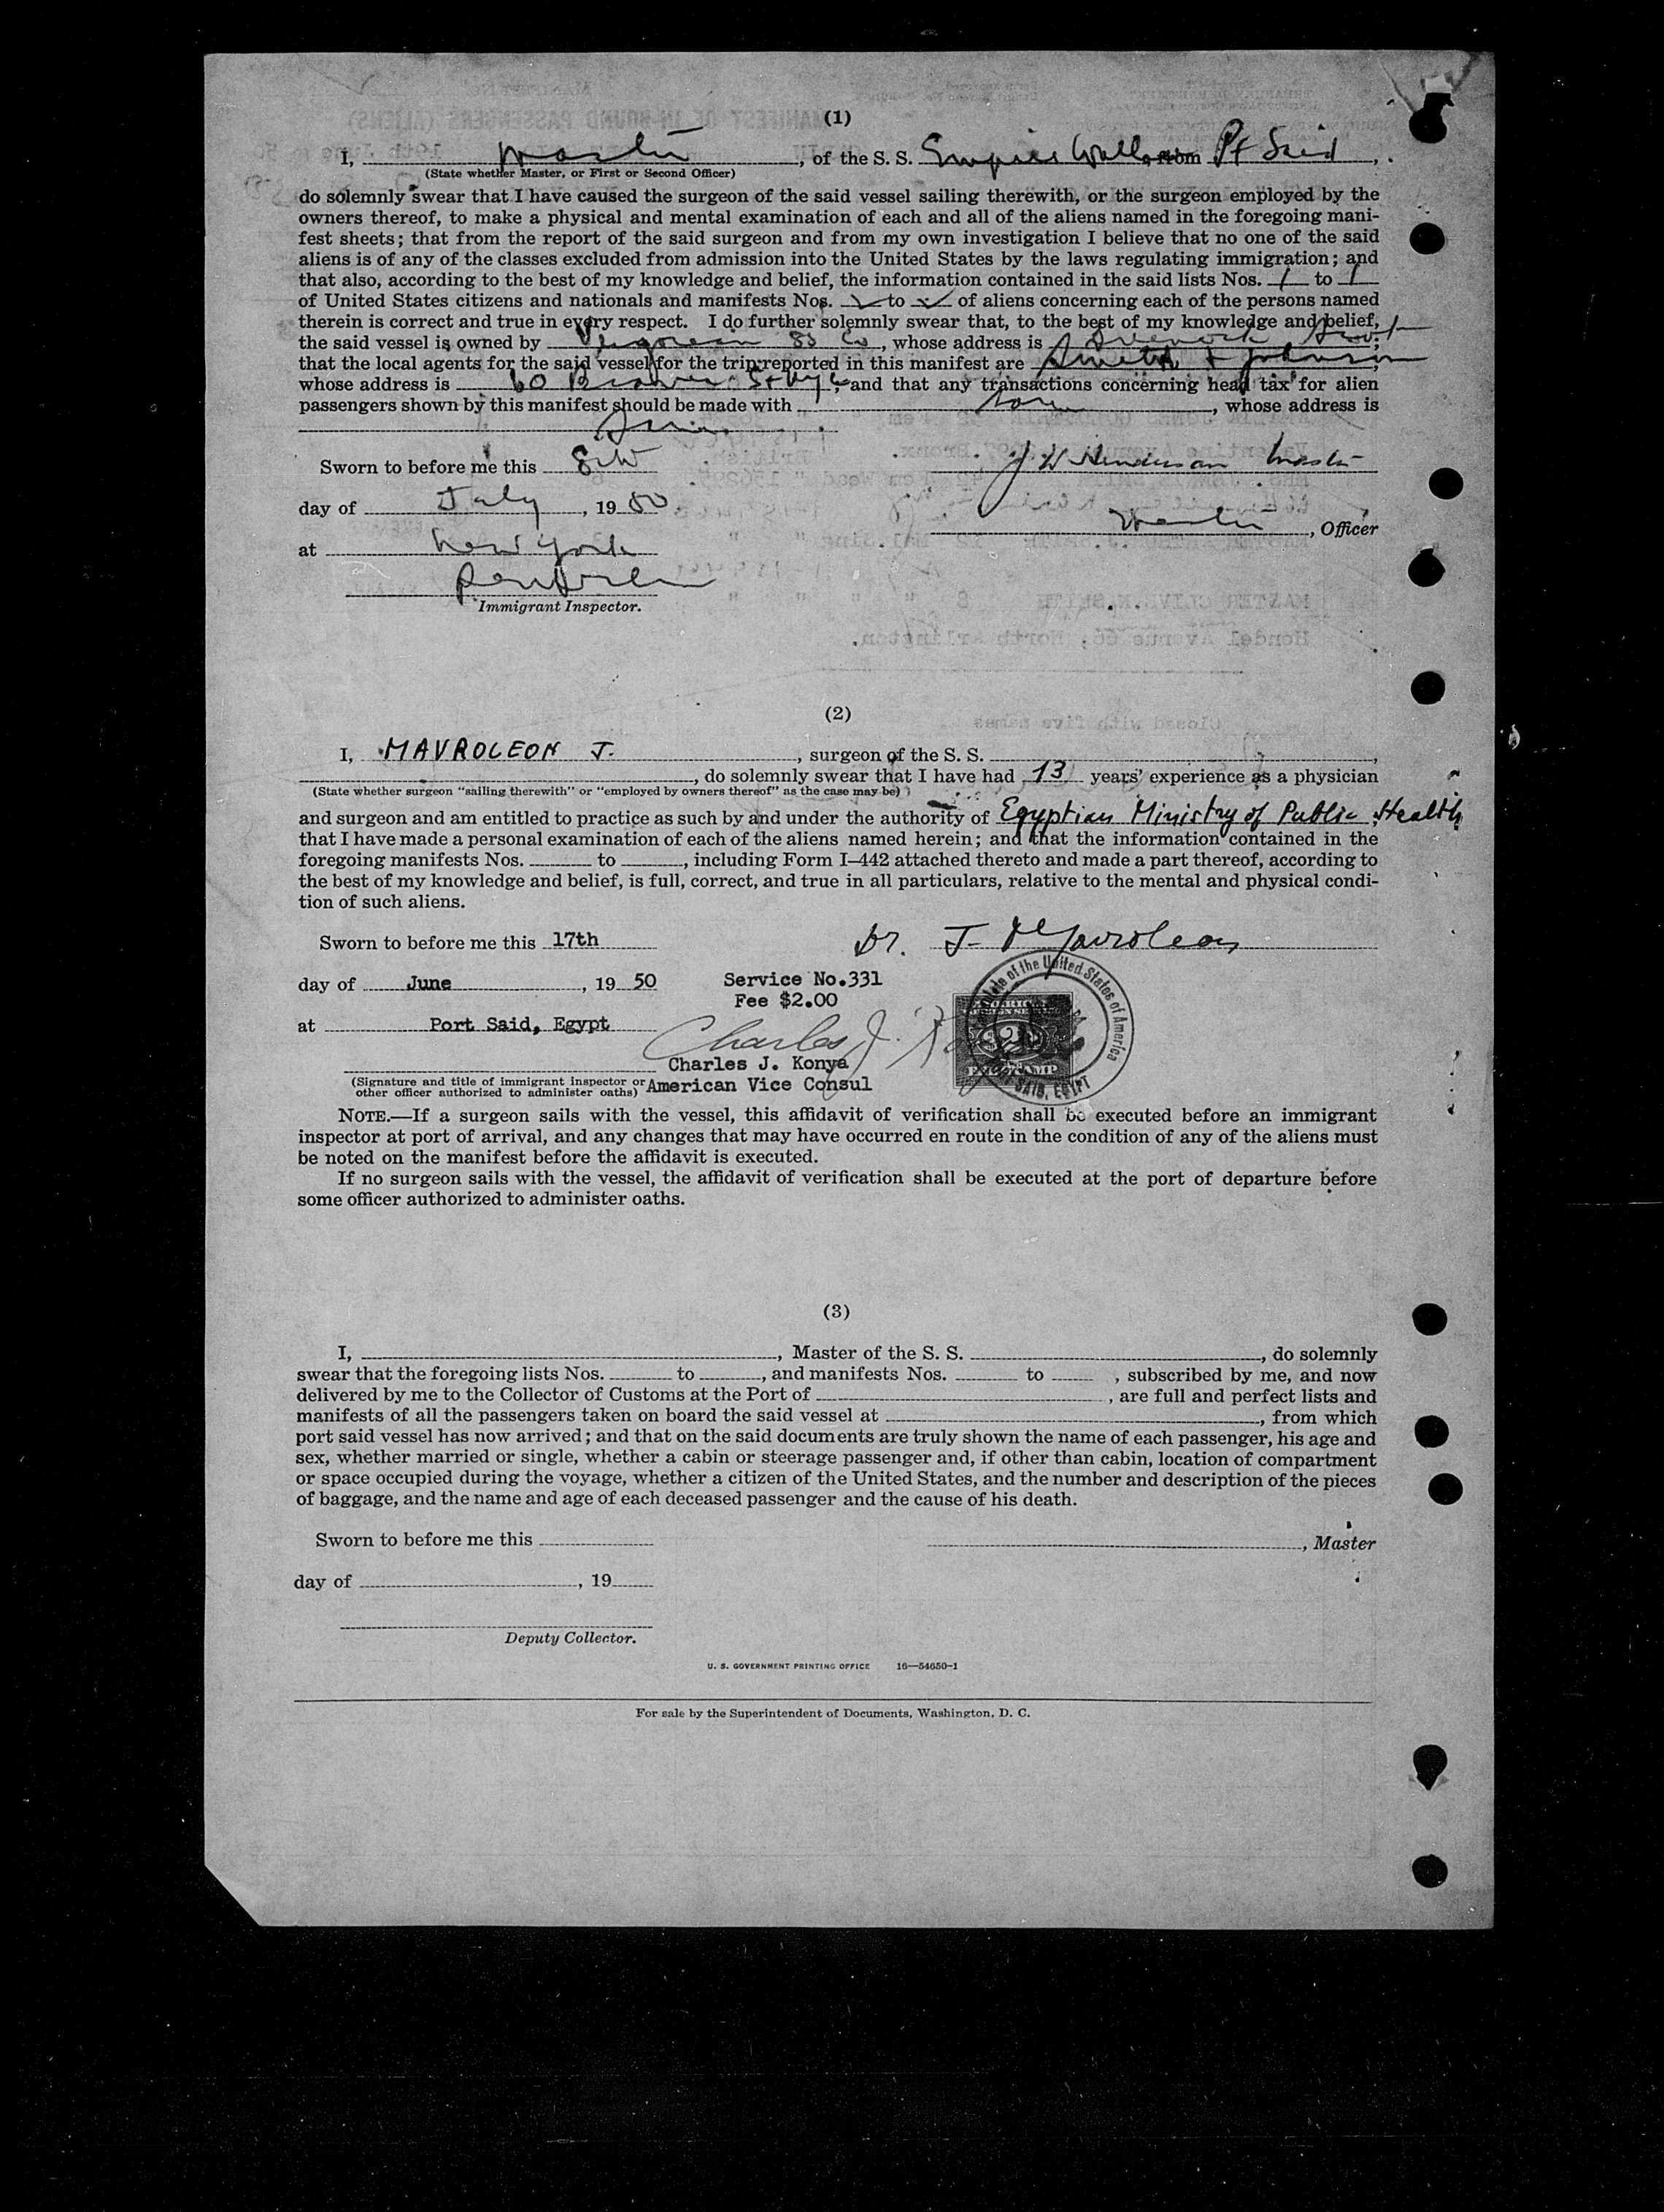 (1)
I, Master, of the S. S. Empire Wallace from Pt Said,
(State whether Master, or First or Second Officer)
do solemnly swear that I have caused the surgeon of the said vessel sailing therewith, or the surgeon employed by the
owners thereof, to make a physical and mental examination of each and all of the aliens named in the foregoing mani-
fest sheets; that from the report of the said surgeon and from my own investigation I believe that no one of the said
aliens is of any of the classes excluded from admission into the United States by the laws regulating immigration; and
that also, according to the best of my knowledge and belief, the information contained in the said lists Nos. 1 to 1
of United States citizens and nationals and manifests Nos. to of aliens concerning each of the persons named
therein is correct and true in every respect. I do further solemnly swear that, to the best of my knowledge and belief,
the said vessel is owned by SS Co, whose address is
that the local agents for the said vessel for the trip reported in this manifest are Smith & Johnson,
whose address is 60 Beaver St NYC, and that any transactions concerning head tax for alien
passengers shown by this manifest should be made with, whose address is
Sworn to before me this 8th J W Henderson Master
day of July, 1950. Master, Officer
at New York
Immigrant Inspector.
(2)
I, MAVROLEON J., surgeon of the S. S.,
, do solemnly swear that I have had 13 years' experience as a physician
(State whether surgeon "sailing therewith" or "employed by owners thereof" as the case may be)
and surgeon and am entitled to practice as such by and under the authority of Egyptian Ministry of Public Health
that I have made a personal examination of each of the aliens named herein; and that the information contained in the
foregoing manifests Nos. to, including Form I-442 attached thereto and made a part thereof, according to
the best of my knowledge and belief, is full, correct, and true in all particulars, relative to the mental and physical condi-
tion of such aliens.
Sworn to before me this 17th Dr. J. Mavroleon
day of June, 19 50 Service No.331
Fee $2.00
at Port Said, Egypt
Charles J. Konya
Charles J. Konya
(Signature and title of immigrant inspector or American Vice Consul
other officer authorized to administer oaths)
of the United States of America
SAID, EGYPT
NOTE.—If a surgeon sails with the vessel, this affidavit of verification shall be executed before an immigrant
inspector at port of arrival, and any changes that may have occurred en route in the condition of any of the aliens must
be noted on the manifest before the affidavit is executed.
If no surgeon sails with the vessel, the affidavit of verification shall be executed at the port of departure before
some officer authorized to administer oaths.
(3)
I,, Master of the S. S., do solemnly
swear that the foregoing lists Nos. to, and manifests Nos. to, subscribed by me, and now
delivered by me to the Collector of Customs at the Port of, are full and perfect lists and
manifests of all the passengers taken on board the said vessel at, from which
port said vessel has now arrived; and that on the said documents are truly shown the name of each passenger, his age and
sex, whether married or single, whether a cabin or steerage passenger and, if other than cabin, location of compartment
or space occupied during the voyage, whether a citizen of the United States, and the number and description of the pieces
of baggage, and the name and age of each deceased passenger and the cause of his death.
Sworn to before me this, Master
day of, 19
Deputy Collector.
U. S. GOVERNMENT PRINTING OFFICE 16—54650-1
For sale by the Superintendent of Documents, Washington, D. C.